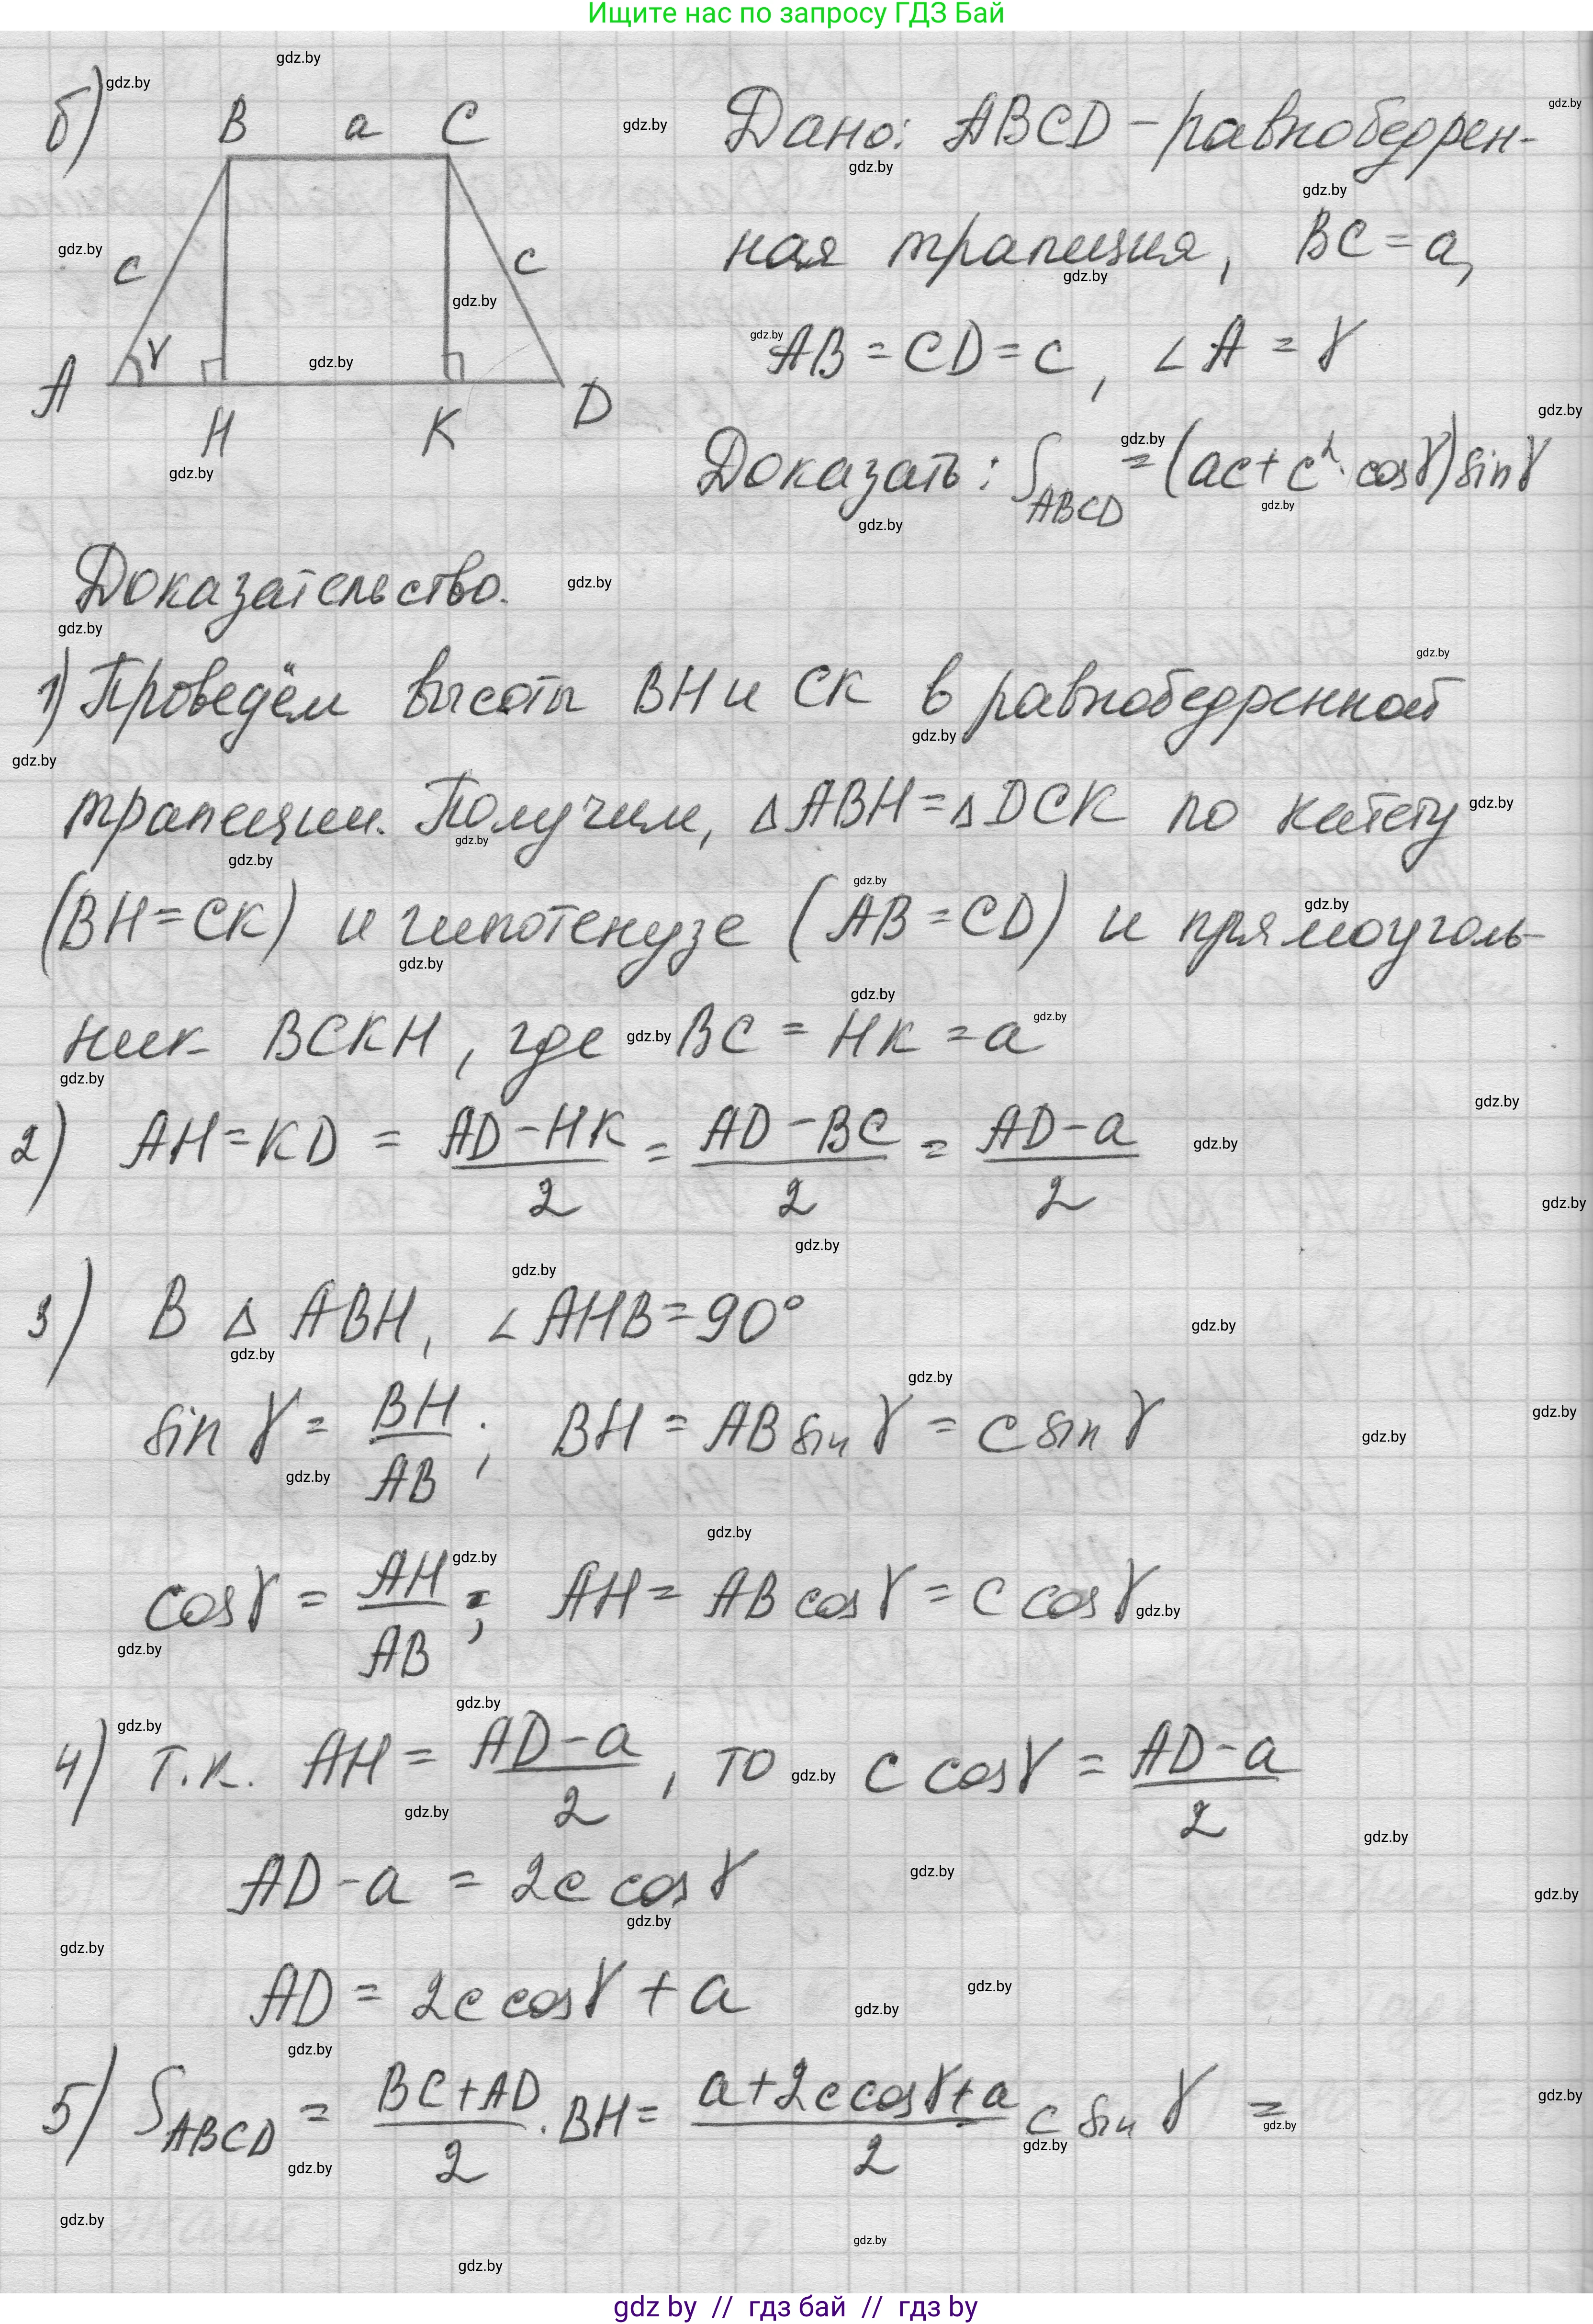 Ищите нас по запросу ГДЗ Бай
б)
B a C
c c
γ
A H K D
Дано: ABCD - равнобедрен-
ная трапеция, BC = a,
AB = CD = c, ∠A = γ
Доказать: S_ABCD = (ac + c²·cosγ) sinγ
Доказательство.
1) Проведём высоты BH и CK в равнобедренной
трапеции. Получим, △ABH = △DCK по катету
(BH = CK) и гипотенузе (AB = CD) и прямоуголь-
ник BCKH, где BC = HK = a
2) AH = KD = (AD - HK)/2 = (AD - BC)/2 = (AD - a)/2
3) В △ ABH, ∠AHB = 90°
sin γ = BH/AB; BH = AB sin γ = c sin γ
cos γ = AH/AB; AH = AB cos γ = c cos γ
4) т.к. AH = (AD - a)/2, то c cos γ = (AD - a)/2
AD - a = 2c cos γ
AD = 2c cos γ + a
5) S_ABCD = (BC + AD)/2 · BH = (a + 2c cos γ + a)/2 c sin γ =
gdz by // гдз бай // гдз by